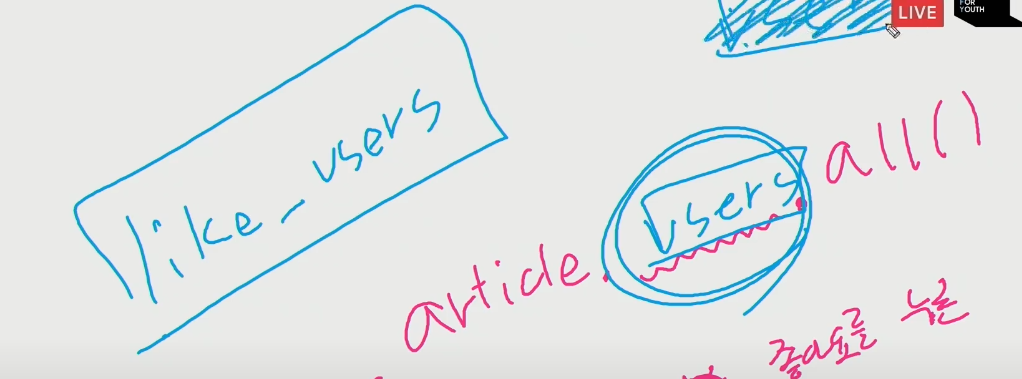 LIVE
FOR
YOUTH
like_users
article.users.all()
좋아요를 누른